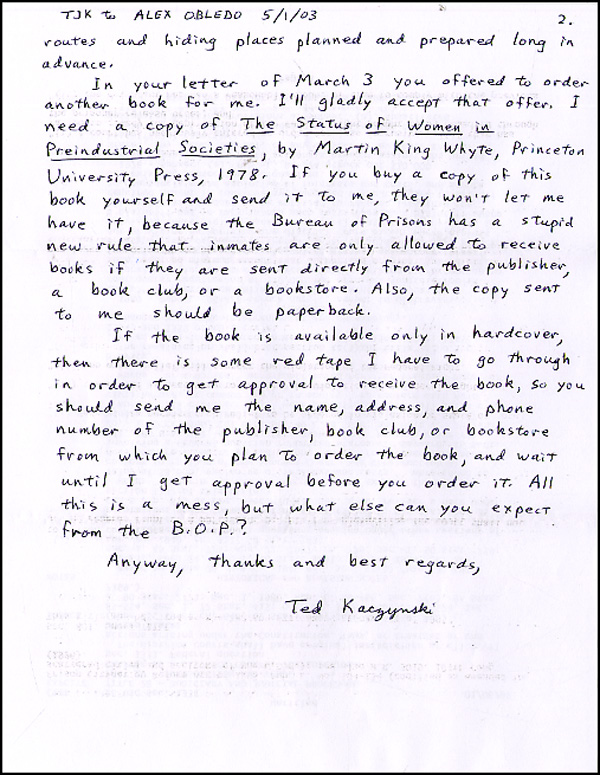 TJK to ALEX OBLEDO 5/1/03 2.
routes and hiding places planned and prepared long in
advance.
In your letter of March 3 you offered to order
another book for me. I'll gladly accept that offer. I
need a copy of The Status of Women in
Preindustrial Societies, by Martin King Whyte, Princeton
University Press, 1978. If you buy a copy of this
book yourself and send it to me, they won't let me
have it, because the Bureau of Prisons has a stupid
new rule that inmates are only allowed to receive
books if they are sent directly from the publisher,
a book club, or a bookstore. Also, the copy sent
to me should be paperback.
If the book is available only in hardcover,
then there is some red tape I have to go through
in order to get approval to receive the book, so you
should send me the name, address, and phone
number of the publisher, book club, or bookstore
from which you plan to order the book, and wait
until I get approval before you order it. All
this is a mess, but what else can you expect
from the B.O.P.?
Anyway, thanks and best regards,
Ted Kaczynski